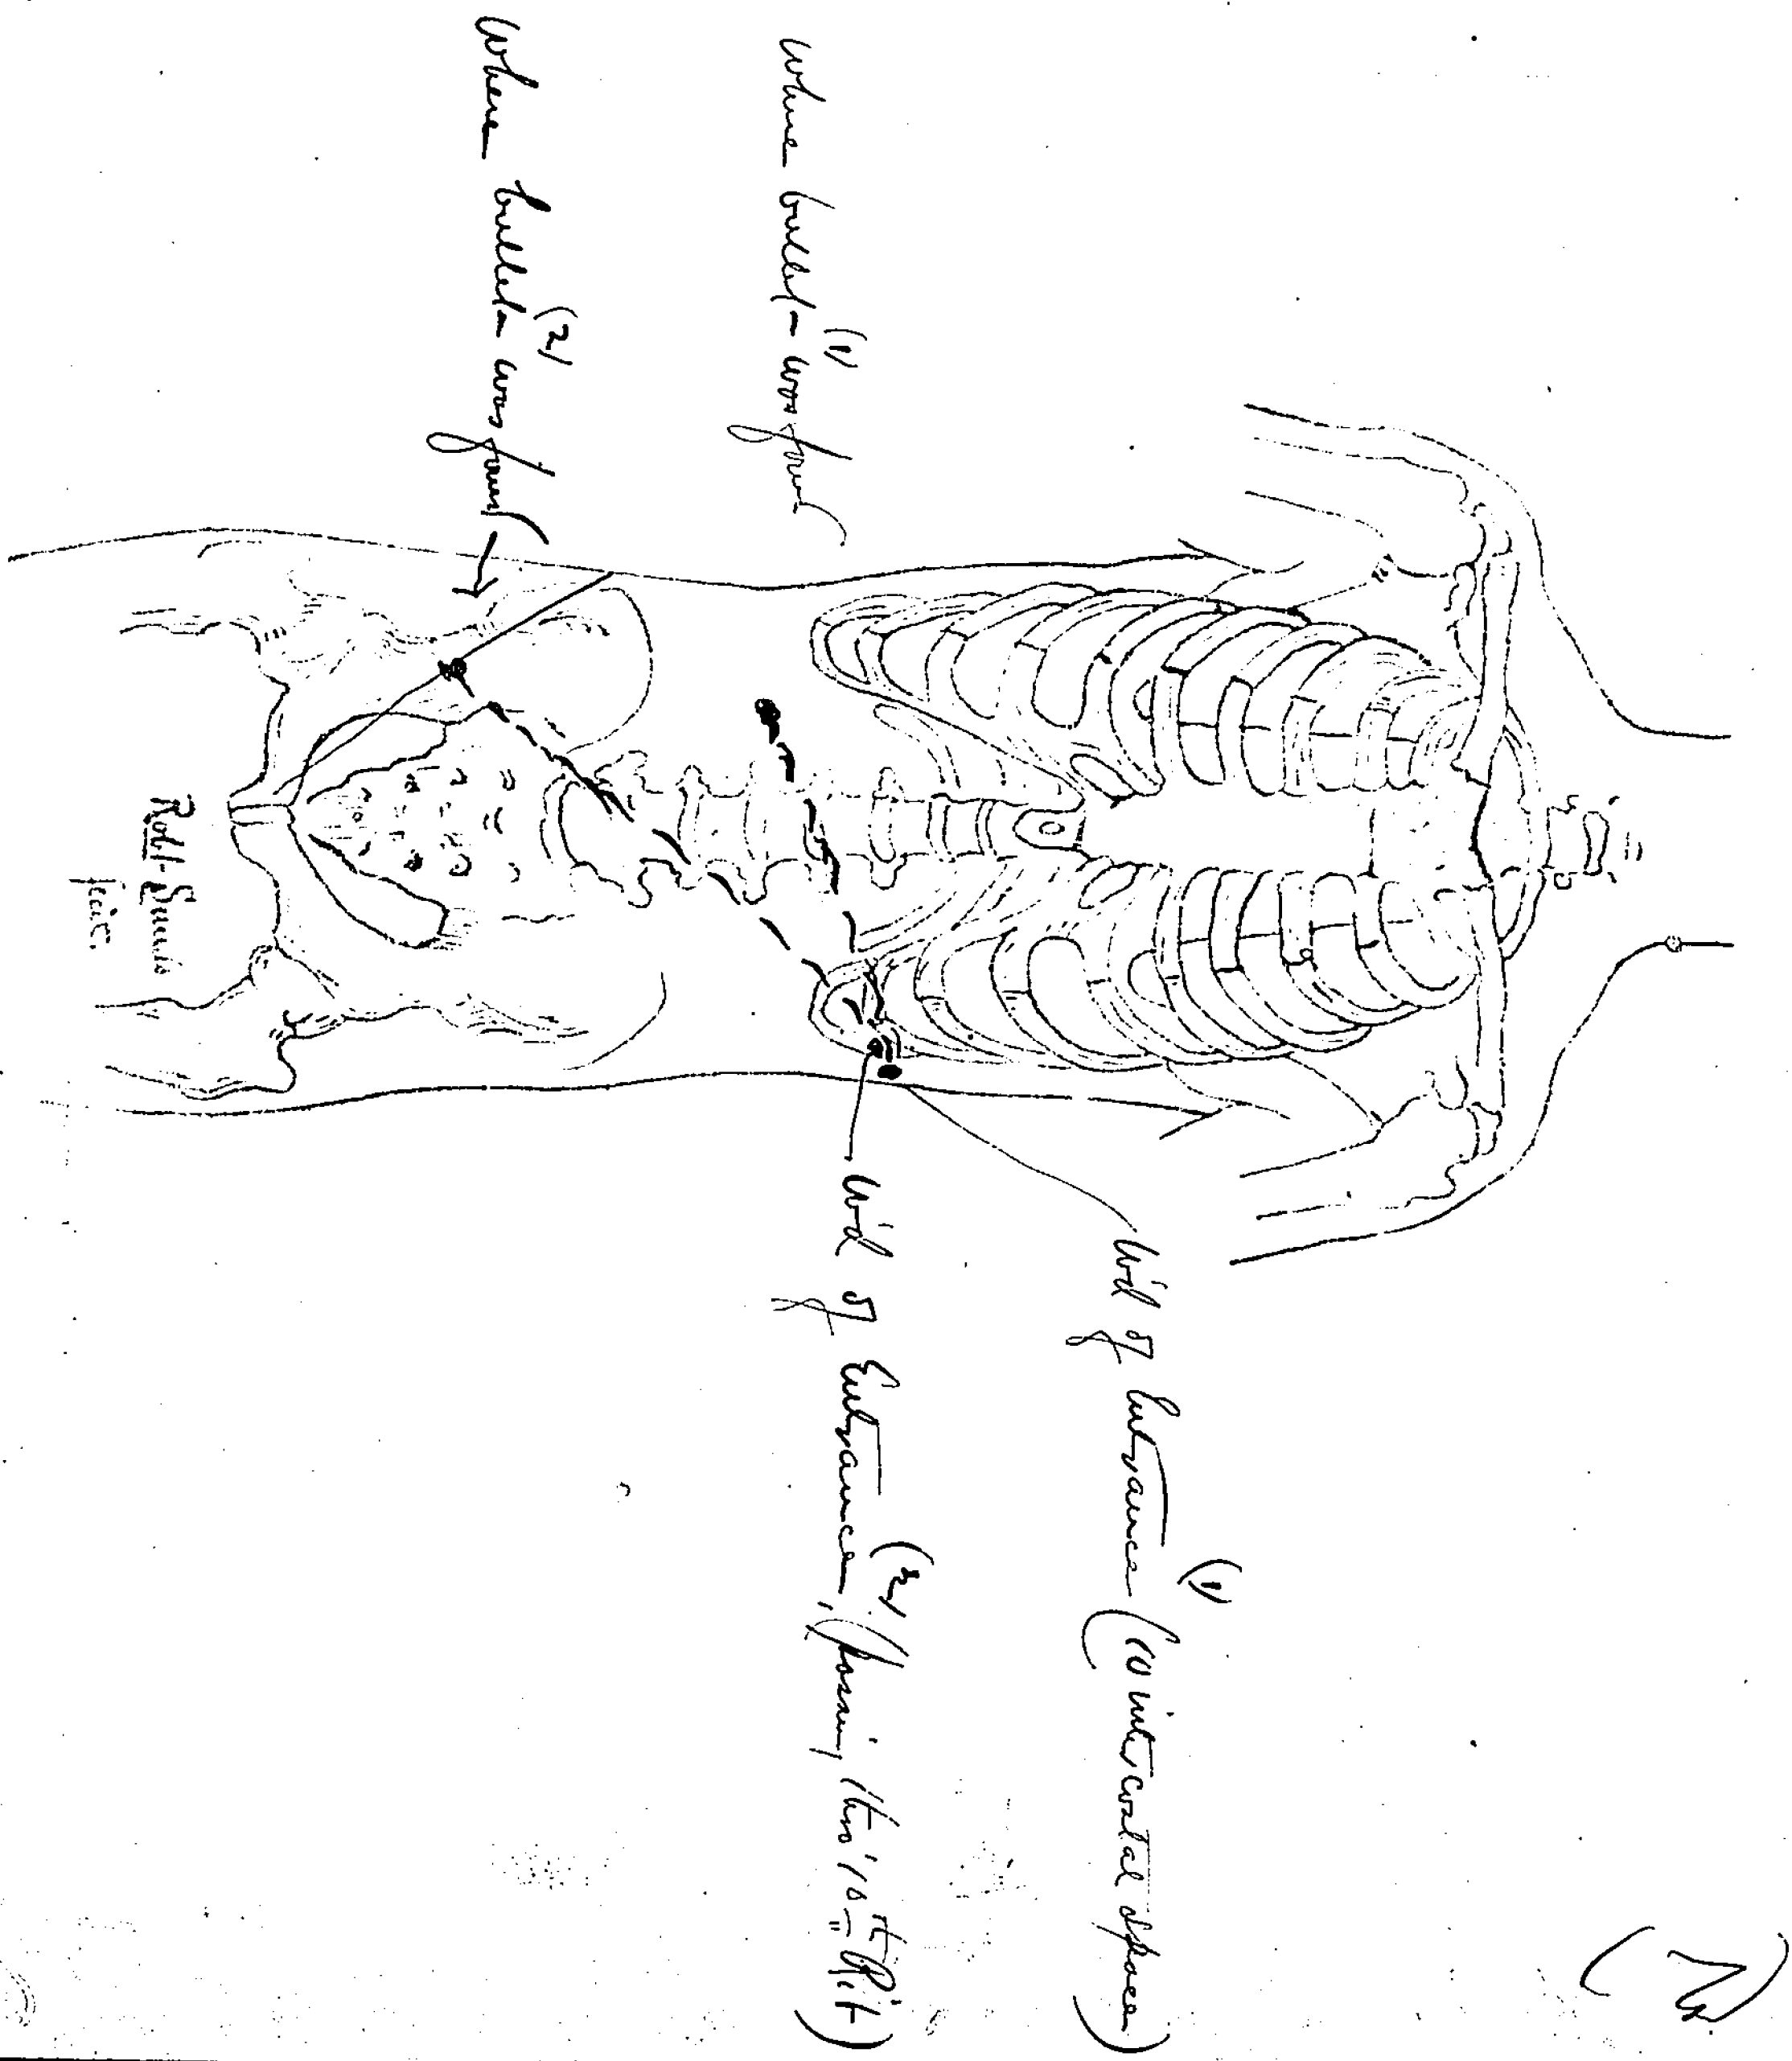 (2)
Wd of Entrance (1) (10 intercostal space)
Wd of Entrance, (2) (passing thro' 10th Rib)
Where bullet (1) was found
Where bullet (2) was found
Robt.
fecit.